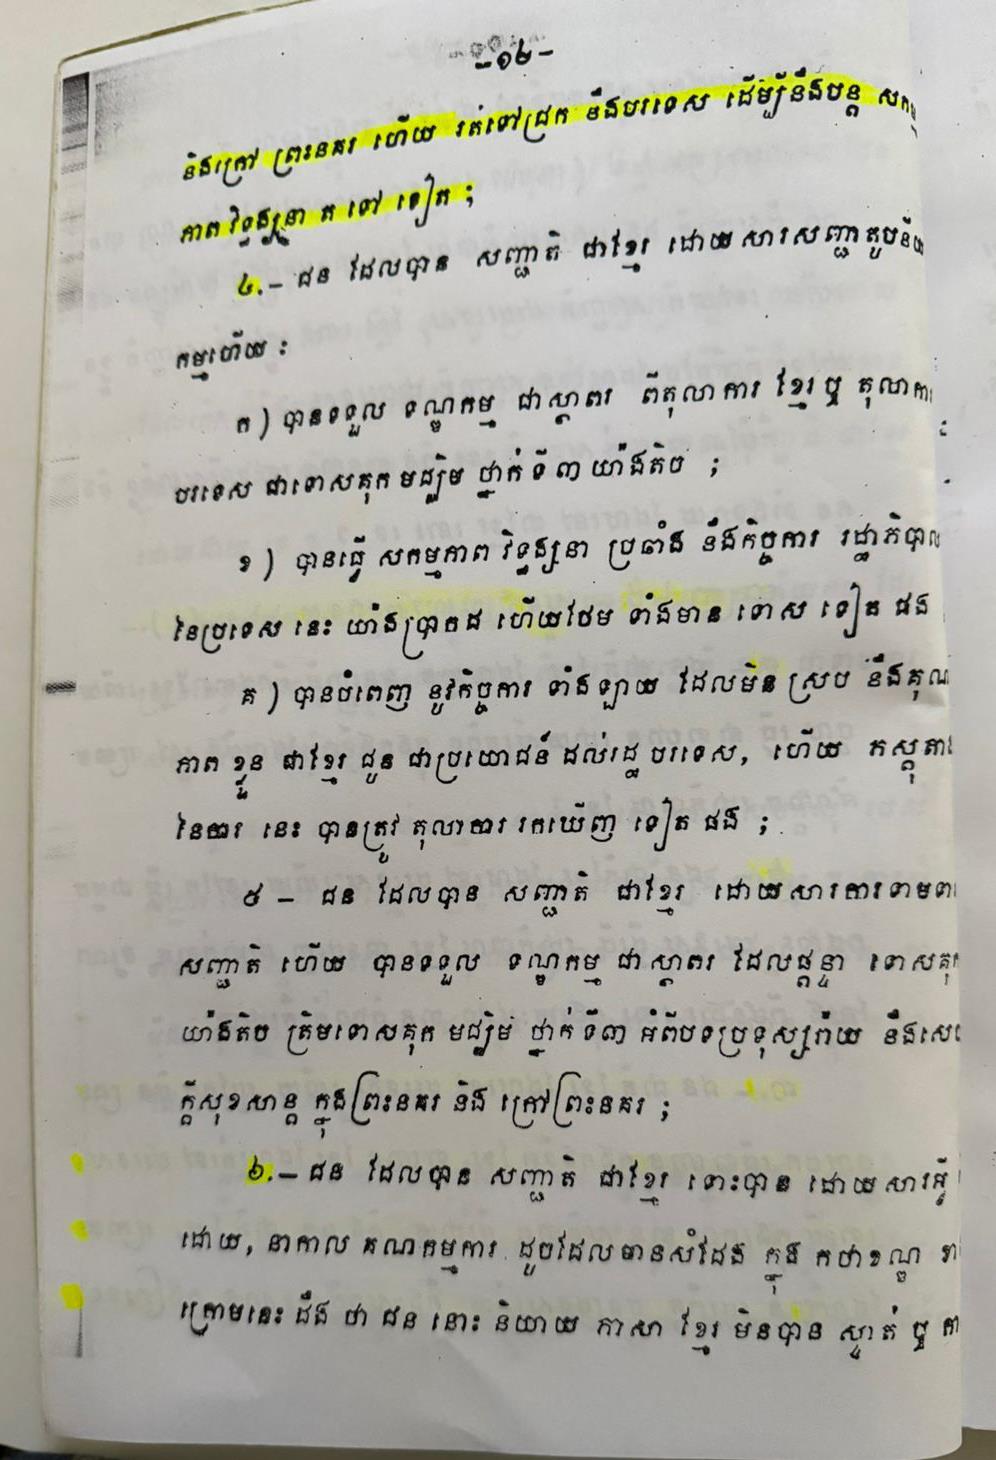 -១២-
និងក្រៅ ព្រះនគរ ហើយ រត់ទៅជ្រក នឹងបរទេស ដើម្បីនឹងបន្ត សកម្ម
ភាព វិទ្ធង្សនា ត ទៅ ទៀត ;
៤.- ជន ដែលបាន សញ្ជាតិ ជាខ្មែរ ដោយសារសញ្ជាតូបនីយ
កម្មហើយ :
ក ) បានទទួល ទណ្ឌកម្ម ជាស្ថាពរ ពីតុលាការ ខ្មែរ ឬ តុលាការ
បរទេស ជាទោសគុក មជ្ឈិម ថ្នាក់ ទី ៣ យ៉ាងតិច ;
ខ ) បានធ្វើ សកម្មភាព វិទ្ធង្សនា ប្រឆាំង នឹងកិច្ចការ រដ្ឋាភិបាល
នៃប្រទេស នេះ យ៉ាងប្រាកដ ហើយថែម ទាំងមាន ទោស ទៀត ផង
គ ) បានបំពេញ នូវកិច្ចការ ទាំងឡាយ ដែលមិន ស្រប នឹងគុណ
ភាព ខ្លួន ជាខ្មែរ ជូន ជាប្រយោជន៍ ដល់រដ្ឋ បរទេស, ហើយ ភស្តុតាង
នៃការ នេះ បានត្រូវ តុលាការ រកឃើញ ទៀត ផង ;
៥ - ជន ដែលបាន សញ្ជាតិ ជាខ្មែរ ដោយសារការទាមទារ
សញ្ជាតិ ហើយ បានទទួល ទណ្ឌកម្ម ជាស្ថាពរ ដែលផ្តន្ទា ទោសគុក
យ៉ាងតិច ត្រឹមទោសគុក មជ្ឈិម ថ្នាក់ ទី៣ អំពីបទប្រទុស្សរ៉ាយ នឹងសេច
ក្តីសុខសាន្ត ក្នុងព្រះនគរ និង ក្រៅព្រះនគរ ;
៦.- ជន ដែលបាន សញ្ជាតិ ជាខ្មែរ ទោះបាន ដោយសារអ្វី
ដោយ, នាកាល គណកម្មការ ដូចដែលមានសំដែង ក្នុង កថាខណ្ឌ ខាង
ក្រោមនេះ ដឹង ថា ជន នោះ និយាយ ភាសា ខ្មែរ មិនបាន ស្ទាត់ ឬ